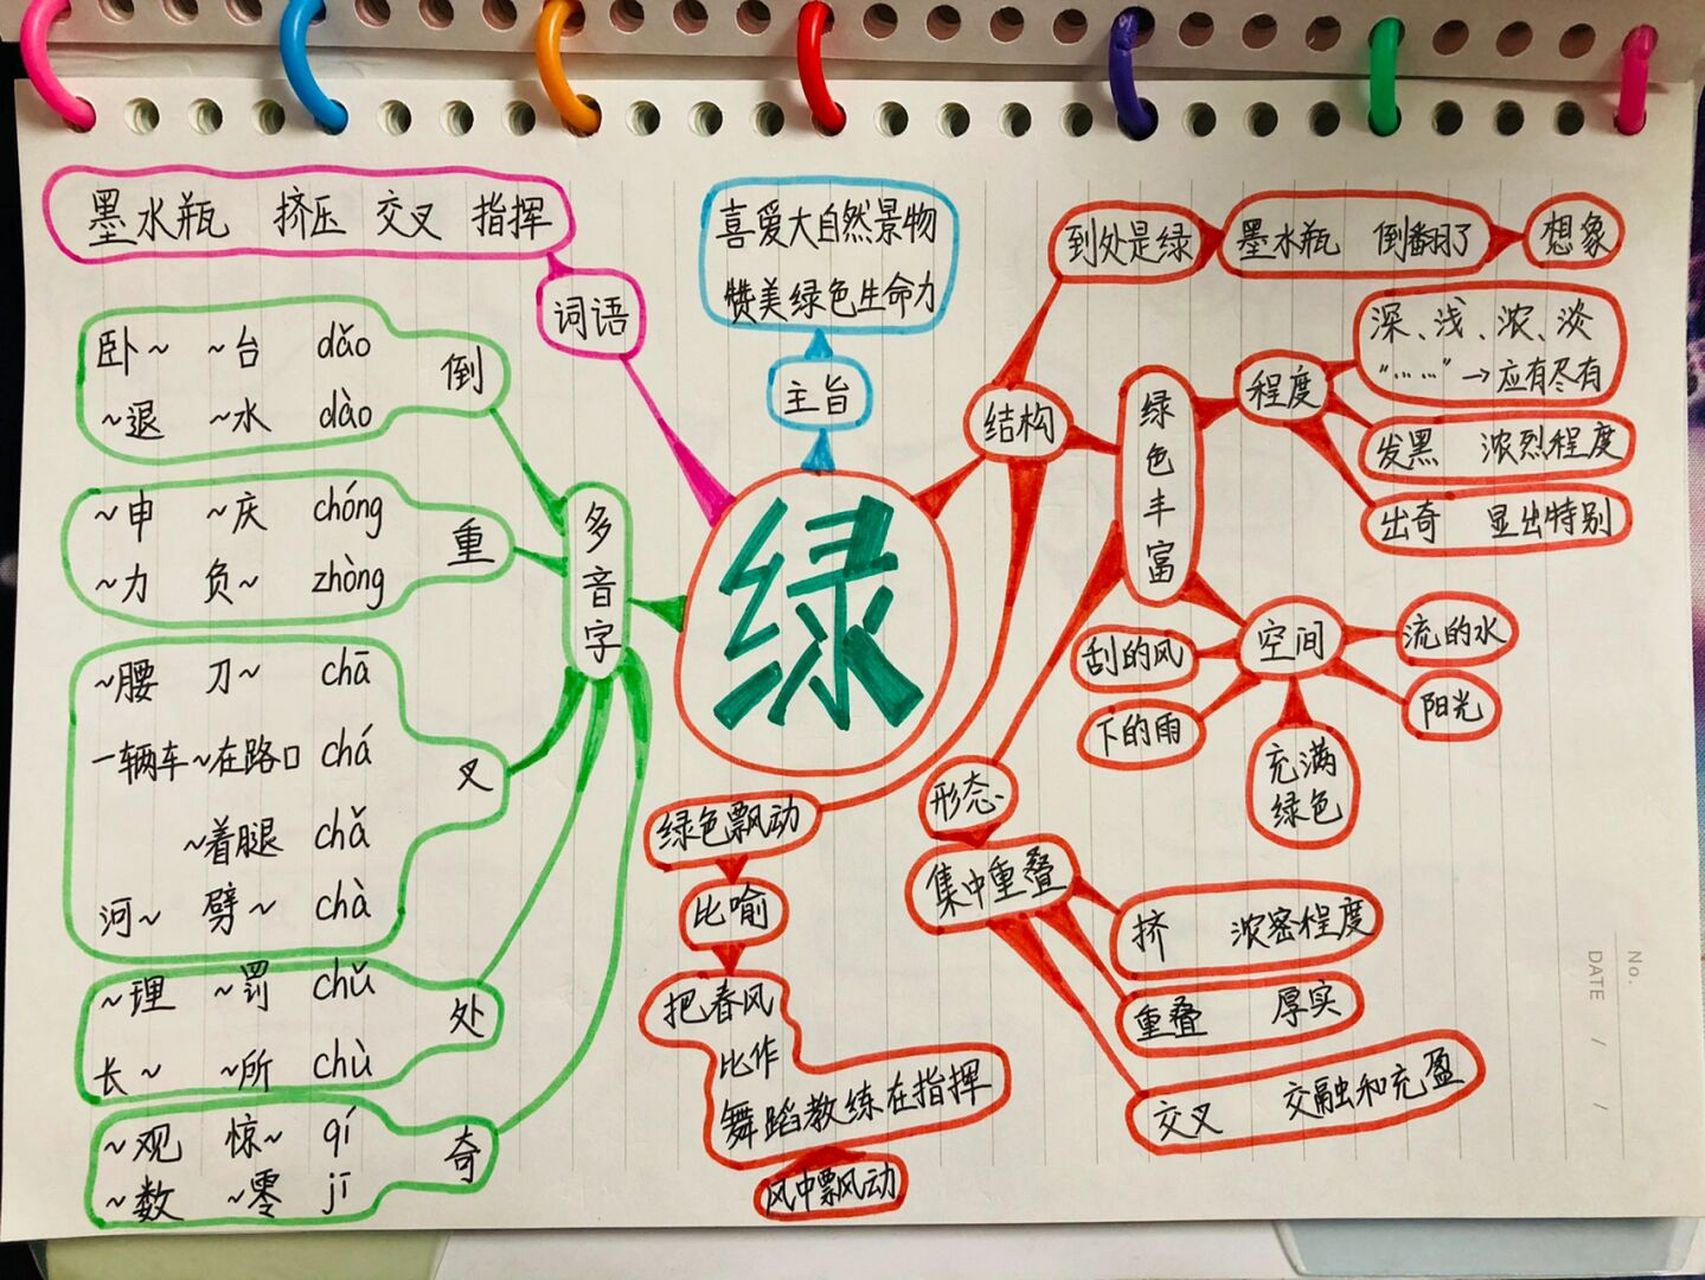 绿
词语
墨水瓶 挤压 交叉 指挥
主旨
喜爱大自然景物
赞美绿色生命力
多音字
倒
卧~ ~台 dǎo
~退 ~水 dào
重
~申 ~庆 chóng
~力 负~ zhòng
叉
~腰 刀~ chā
一辆车~在路口 chá
~着腿 chǎ
河~ 劈~ chà
处
~理 ~罚 chǔ
长~ ~所 chù
奇
~观 惊~ qí
~数 ~零 jī
结构
到处是绿
墨水瓶 倒翻了
想象
绿色丰富
程度
深、浅、浓、淡
“……”→应有尽有
发黑 浓烈程度
出奇 显出特别
空间
刮的风
下的雨
流的水
阳光
充满
绿色
形态
集中重叠
挤 浓密程度
重叠 厚实
交叉 交融和充盈
绿色飘动
比喻
把春风
比作
舞蹈教练在指挥
风中飘动
No.
DATE / /